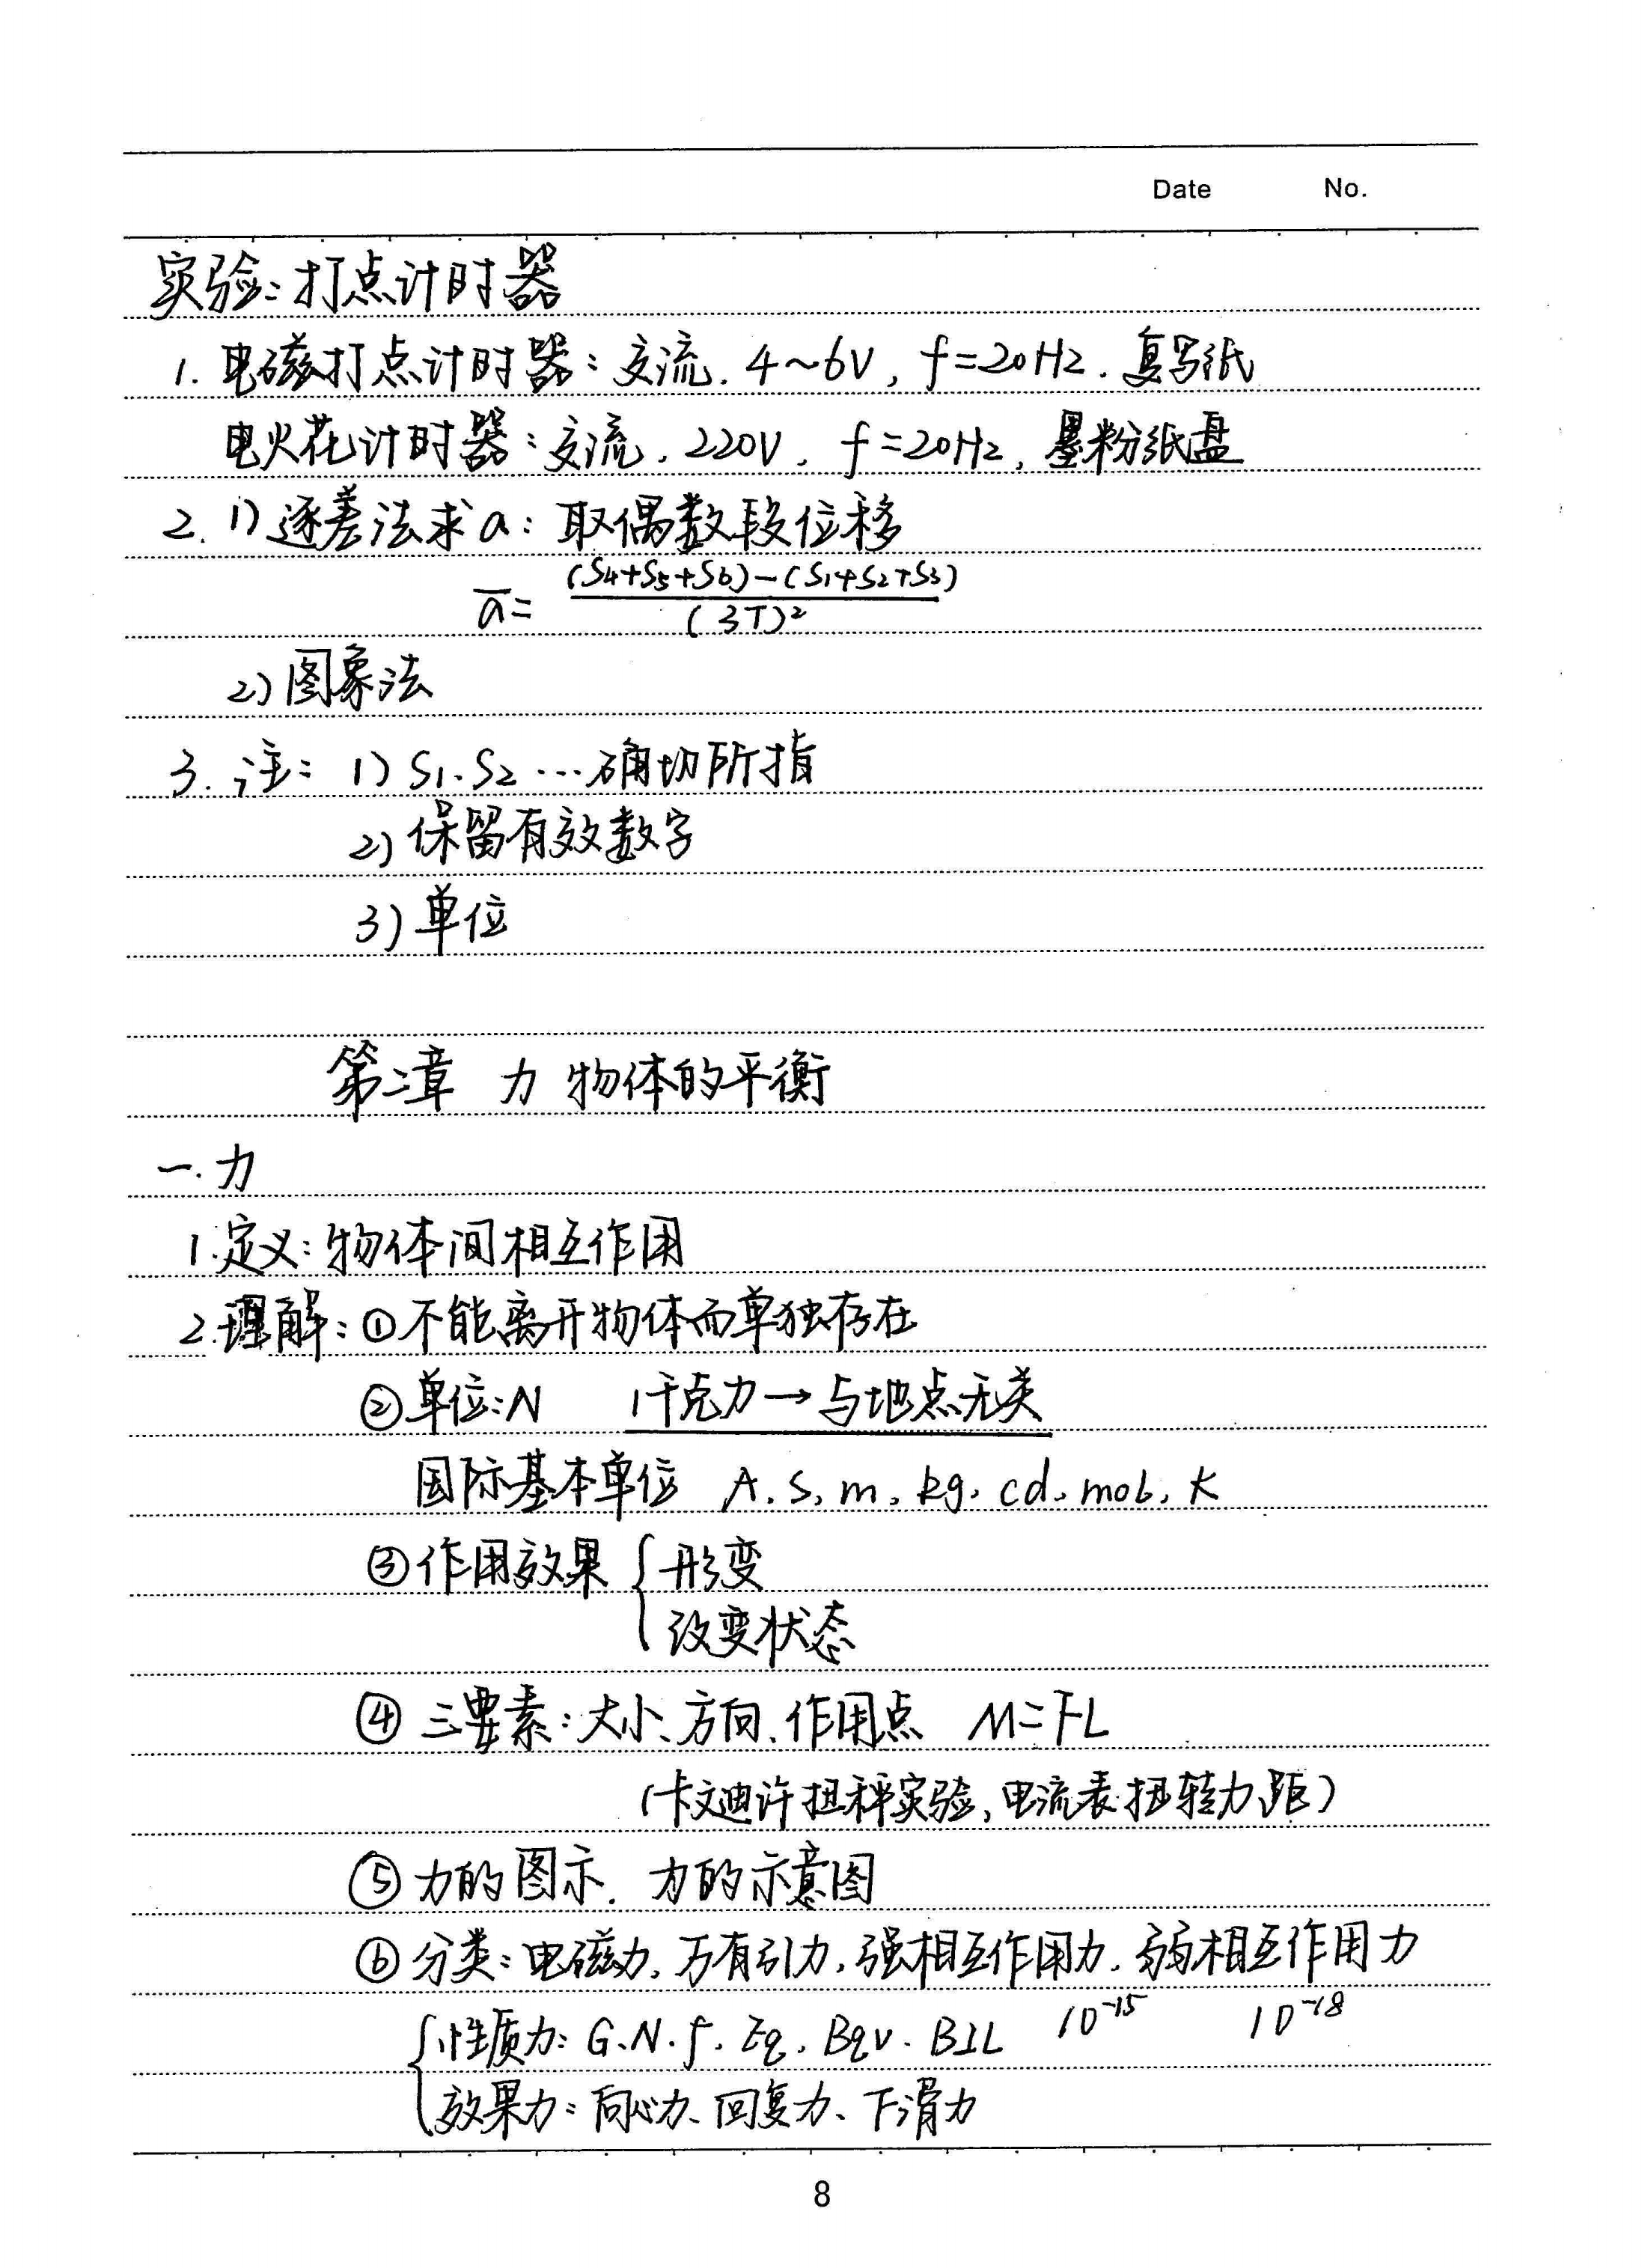 Date No.
实验：打点计时器
1. 电磁打点计时器：交流. 4~6V, f=20Hz. 复写纸
电火花计时器：交流. 220V, f=20Hz, 墨粉纸盘
2. 1) 逐差法求a：取偶数段位移
a̅ = ((S₄+S₅+S₆)-(S₁+S₂+S₃))/(3T)²
2) 图象法
3. 注：1) S₁、S₂…确切所指
2) 保留有效数字
3) 单位
第二章 力 物体的平衡
一. 力
1. 定义：物体间相互作用
2. 理解：①不能离开物体而单独存在
②单位：N 1千克力→与地点无关
国际基本单位 A. s, m, kg, cd, mol, K
③作用效果 { 形变
改变状态
④三要素：大小、方向、作用点 M=FL
(卡文迪许扭秤实验, 电流表扭转力距)
⑤力的图示. 力的示意图
⑥分类：电磁力, 万有引力, 强相互作用力. 弱相互作用力
10⁻¹⁵ 10⁻¹⁸
{ 性质力：G、N. f. Eq. Bqv. BIL
效果力：向心力、回复力、下滑力
8